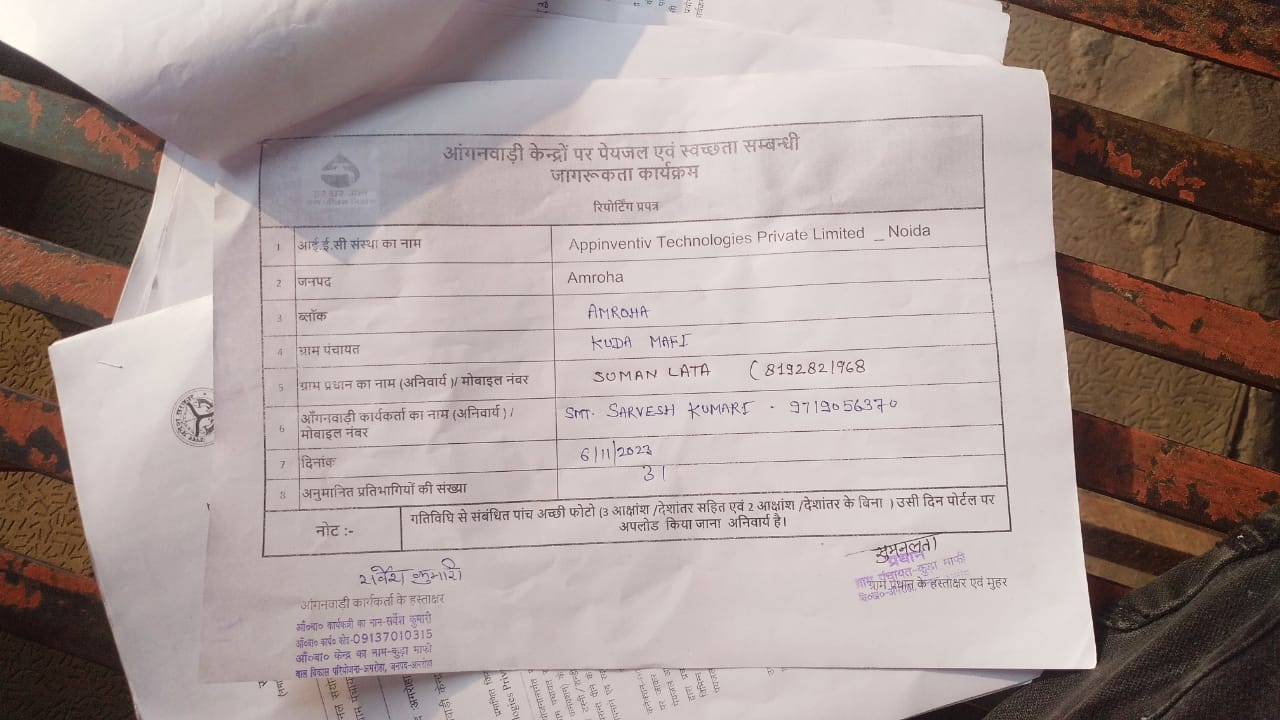 आंगनवाड़ी केन्द्रों पर पेयजल एवं स्वच्छता सम्बन्धी
जागरूकता कार्यक्रम
रिपोर्टिंग प्रपत्र
हर घर जल
1 आई.ई.सी संस्था का नाम Appinventiv Technologies Private Limited _ Noida
2 जनपद Amroha
3 ब्लॉक AMROHA
4 ग्राम पंचायत KUDA MAFI
5 ग्राम प्रधान का नाम (अनिवार्य )/ मोबाइल नंबर SUMAN LATA (8192821968
6 आँगनवाड़ी कार्यकर्ता का नाम (अनिवार्य ) /
मोबाइल नंबर SMT. SARVESH KUMARI - 9719056370
7 दिनांक 6/11/2023
8 अनुमानित प्रतिभागियों की संख्या 31
नोट :- गतिविधि से संबंधित पांच अच्छी फोटो (3 आक्षांश /देशांतर सहित एवं 2 आक्षांश /देशांतर के बिना ) उसी दिन पोर्टल पर
अपलोड किया जाना अनिवार्य है।
सर्वेश कुमारी
आंगनवाड़ी कार्यकर्ता के हस्ताक्षर
आँ०बा० कार्यकत्री का नाम-सर्वेश कुमारी
आँ०बा० कार्य० कोड-09137010315
आँ०बा० केन्द्र का नाम-कुड़ा माफी
बाल विकास परियोजना-अमरोहा, जनपद-अमरोहा
सुमनलता
प्रधान
ग्राम पंचायत-कुड़ा माफी
ग्राम प्रधान के हस्ताक्षर एवं मुहर